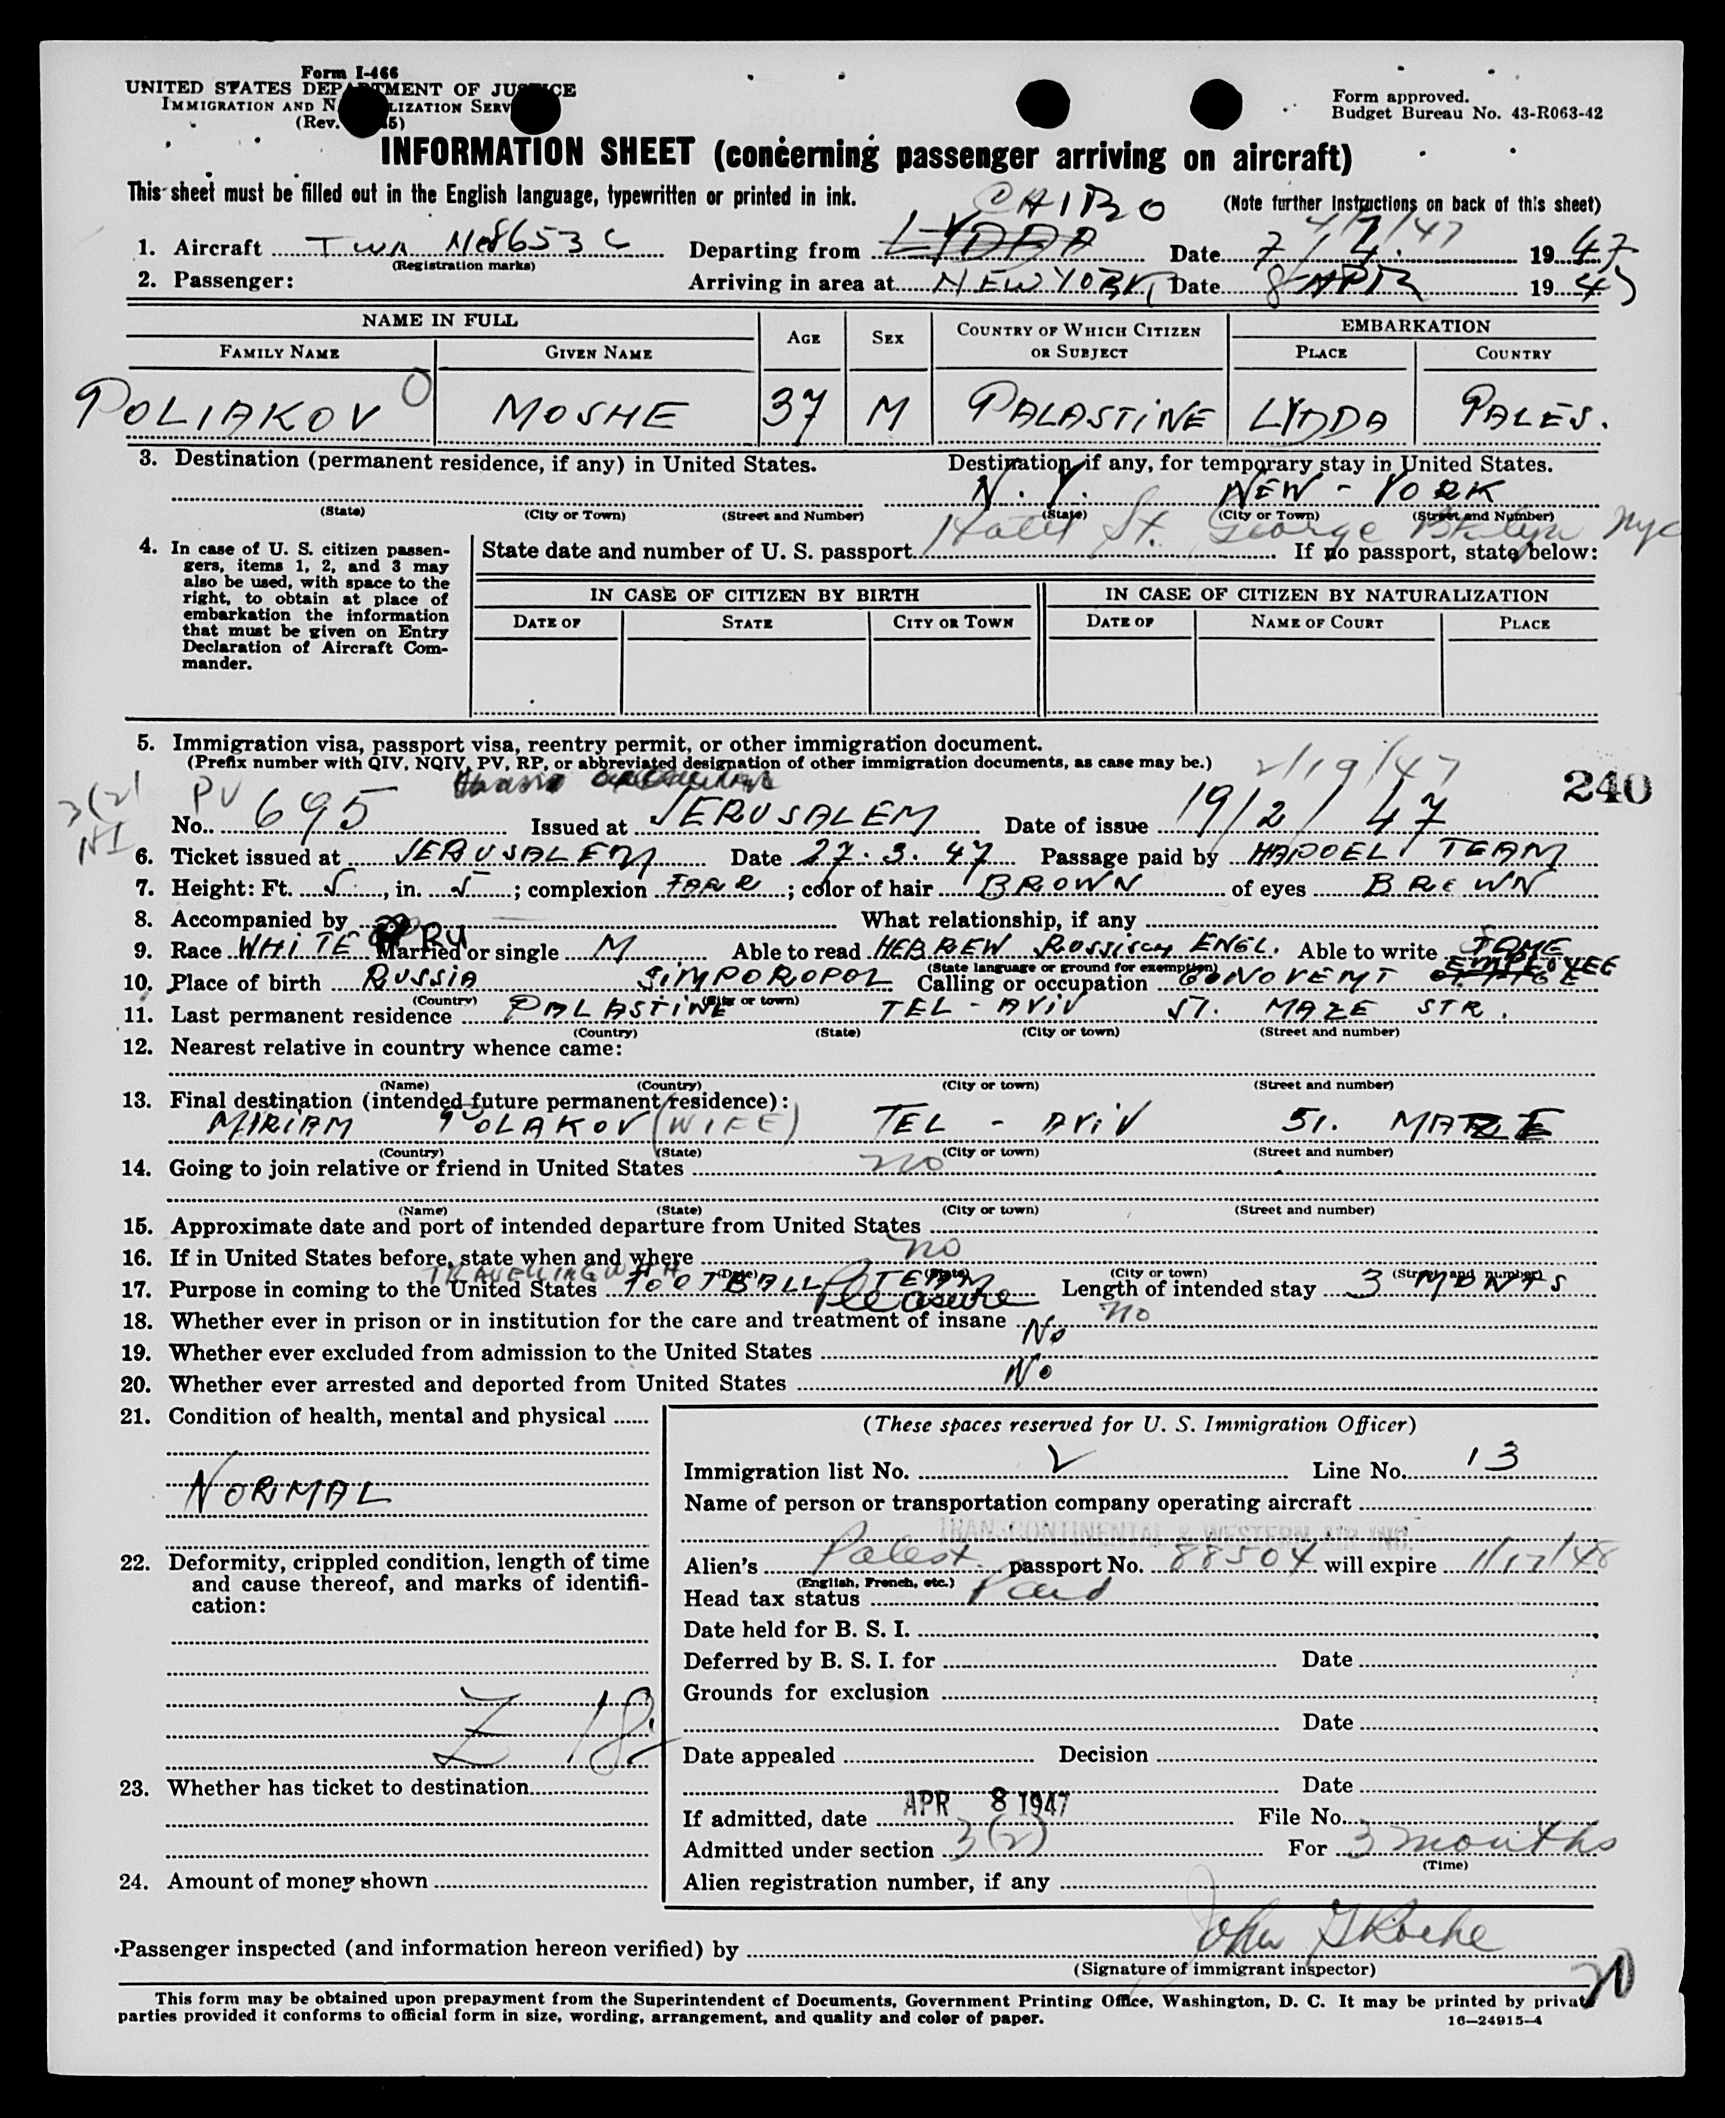 Form I-466
UNITED STATES DEPARTMENT OF JUSTICE
IMMIGRATION AND NATURALIZATION SERV
(Rev. 5)
Form approved.
Budget Bureau No. 43-R063-42
INFORMATION SHEET (concerning passenger arriving on aircraft)
This sheet must be filled out in the English language, typewritten or printed in ink.
(Note further Instructions on back of this sheet)
CAIRO
4/7/47
1. Aircraft TWA Nc8653C Departing from LYDDA Date 7/4. 1947
(Registration marks)
2. Passenger: Arriving in area at NEW YORK Date 8 APR 1947
NAME IN FULL AGE SEX COUNTRY OF WHICH CITIZEN OR SUBJECT EMBARKATION
FAMILY NAME GIVEN NAME PLACE COUNTRY
POLIAKOV MOSHE 37 M PALASTINE LYDDA PALES.
3. Destination (permanent residence, if any) in United States. Destination, if any, for temporary stay in United States.
N.Y. NEW-YORK
(State) (City or Town) (Street and Number) (State) (City or Town) (Street and Number)
Hotel St. George Bklyn NYC
4. In case of U. S. citizen passengers, items 1, 2, and 3 may also be used, with space to the right, to obtain at place of embarkation the information that must be given on Entry Declaration of Aircraft Commander.
State date and number of U. S. passport If no passport, state below:
IN CASE OF CITIZEN BY BIRTH IN CASE OF CITIZEN BY NATURALIZATION
DATE OF STATE CITY OR TOWN DATE OF NAME OF COURT PLACE
5. Immigration visa, passport visa, reentry permit, or other immigration document.
(Prefix number with QIV, NQIV, PV, RP, or abbreviated designation of other immigration documents, as case may be.)
2/19/47
240
3(2)
NI
PV
No. 695 Issued at JERUSALEM Date of issue 19/2/47
6. Ticket issued at JERUSALEM Date 27.3.47 Passage paid by HAPOEL TEAM
7. Height: Ft. 5, in. 5; complexion FARE; color of hair BROWN of eyes BROWN
8. Accompanied by What relationship, if any
9. Race WHITE RU Married or single M Able to read HEBREW RUSSISCH ENGL. Able to write SAME
(State language or ground for exemption)
10. Place of birth RUSSIA SIMPOROPOL Calling or occupation GONOVEMT OFFICE EMPLOYEE
(Country) (City or town)
11. Last permanent residence PALASTINE TEL-AVIV 51. MAZE STR.
(Country) (State) (City or town) (Street and number)
12. Nearest relative in country whence came:
(Name) (Country) (City or town) (Street and number)
13. Final destination (intended future permanent residence):
MIRIAM POLAKOV (WIFE) TEL-AVIV 51. MAZE
(Country) (State) (City or town) (Street and number)
14. Going to join relative or friend in United States no
(Name) (State) (City or town) (Street and number)
15. Approximate date and port of intended departure from United States
16. If in United States before, state when and where no
(Date) (State) (City or town) (Street and number)
TRAVELLING WITH
17. Purpose in coming to the United States FOOTBALL TEAM Length of intended stay 3 MONTS
Pleasure
18. Whether ever in prison or in institution for the care and treatment of insane no
19. Whether ever excluded from admission to the United States No
20. Whether ever arrested and deported from United States No
21. Condition of health, mental and physical
NORMAL
22. Deformity, crippled condition, length of time and cause thereof, and marks of identification:
Z 18
23. Whether has ticket to destination
24. Amount of money shown
(These spaces reserved for U. S. Immigration Officer)
Immigration list No. V Line No. 13
Name of person or transportation company operating aircraft
TRANSCONTINENTAL & WESTERN AIR INC.
Alien's Palest. passport No. 88504 will expire 1/17/48
(English, French, etc.)
Head tax status Paid
Date held for B. S. I.
Deferred by B. S. I. for Date
Grounds for exclusion
Date
Date appealed Decision
Date
If admitted, date APR 8 1947 File No.
Admitted under section 3(2) For 3 months
(Time)
Alien registration number, if any
Passenger inspected (and information hereon verified) by John G Roche
(Signature of immigrant inspector)
This form may be obtained upon prepayment from the Superintendent of Documents, Government Printing Office, Washington, D. C. It may be printed by private
parties provided it conforms to official form in size, wording, arrangement, and quality and color of paper.
16—24915-4